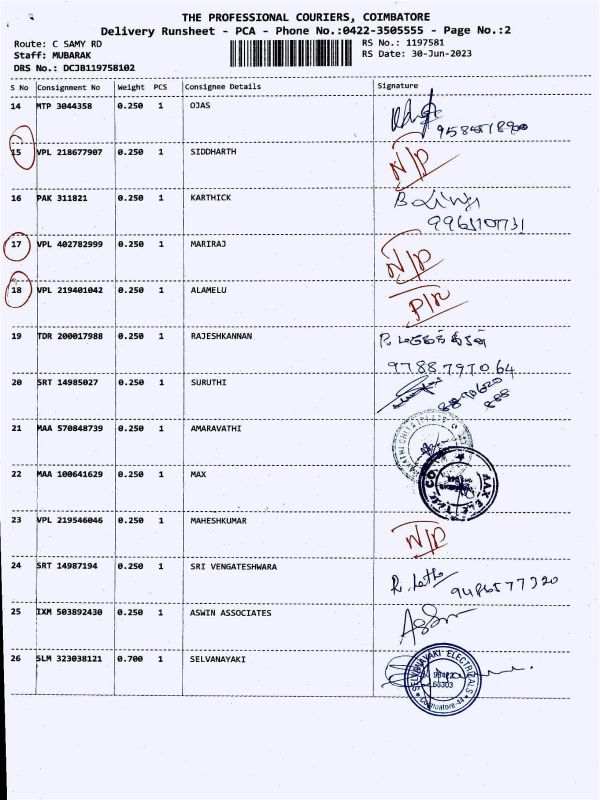 THE PROFESSIONAL COURIERS, COIMBATORE
Delivery Runsheet - PCA - Phone No.:0422-3505555 - Page No.:2
Route: C SAMY RD
RS No.: 1197581
Staff: MUBARAK
RS Date: 30-Jun-2023
DRS No.: DCJB119758102
S No Consignment No Weight PCS Consignee Details Signature
14 MTP 3044358 0.250 1 OJAS
15 VPL 218677907 0.250 1 SIDDHARTH N/P
16 PAK 311821 0.250 1 KARTHICK
17 VPL 402782999 0.250 1 MARIRAJ N/P
18 VPL 219401042 0.250 1 ALAMELU
19 TDR 200017988 0.250 1 RAJESHKANNAN
9788797064
20 SRT 14985027 0.250 1 SURUTHI
21 MAA 570848739 0.250 1 AMARAVATHI
22 MAA 100641629 0.250 1 MAX
23 VPL 219546046 0.250 1 MAHESHKUMAR N/P
24 SRT 14987194 0.250 1 SRI VENGATESHWARA
9486577320
25 IXM 503892430 0.250 1 ASWIN ASSOCIATES
26 SLM 323038121 0.700 1 SELVANAYAKI SELVANAYAKI ELECTRICALS